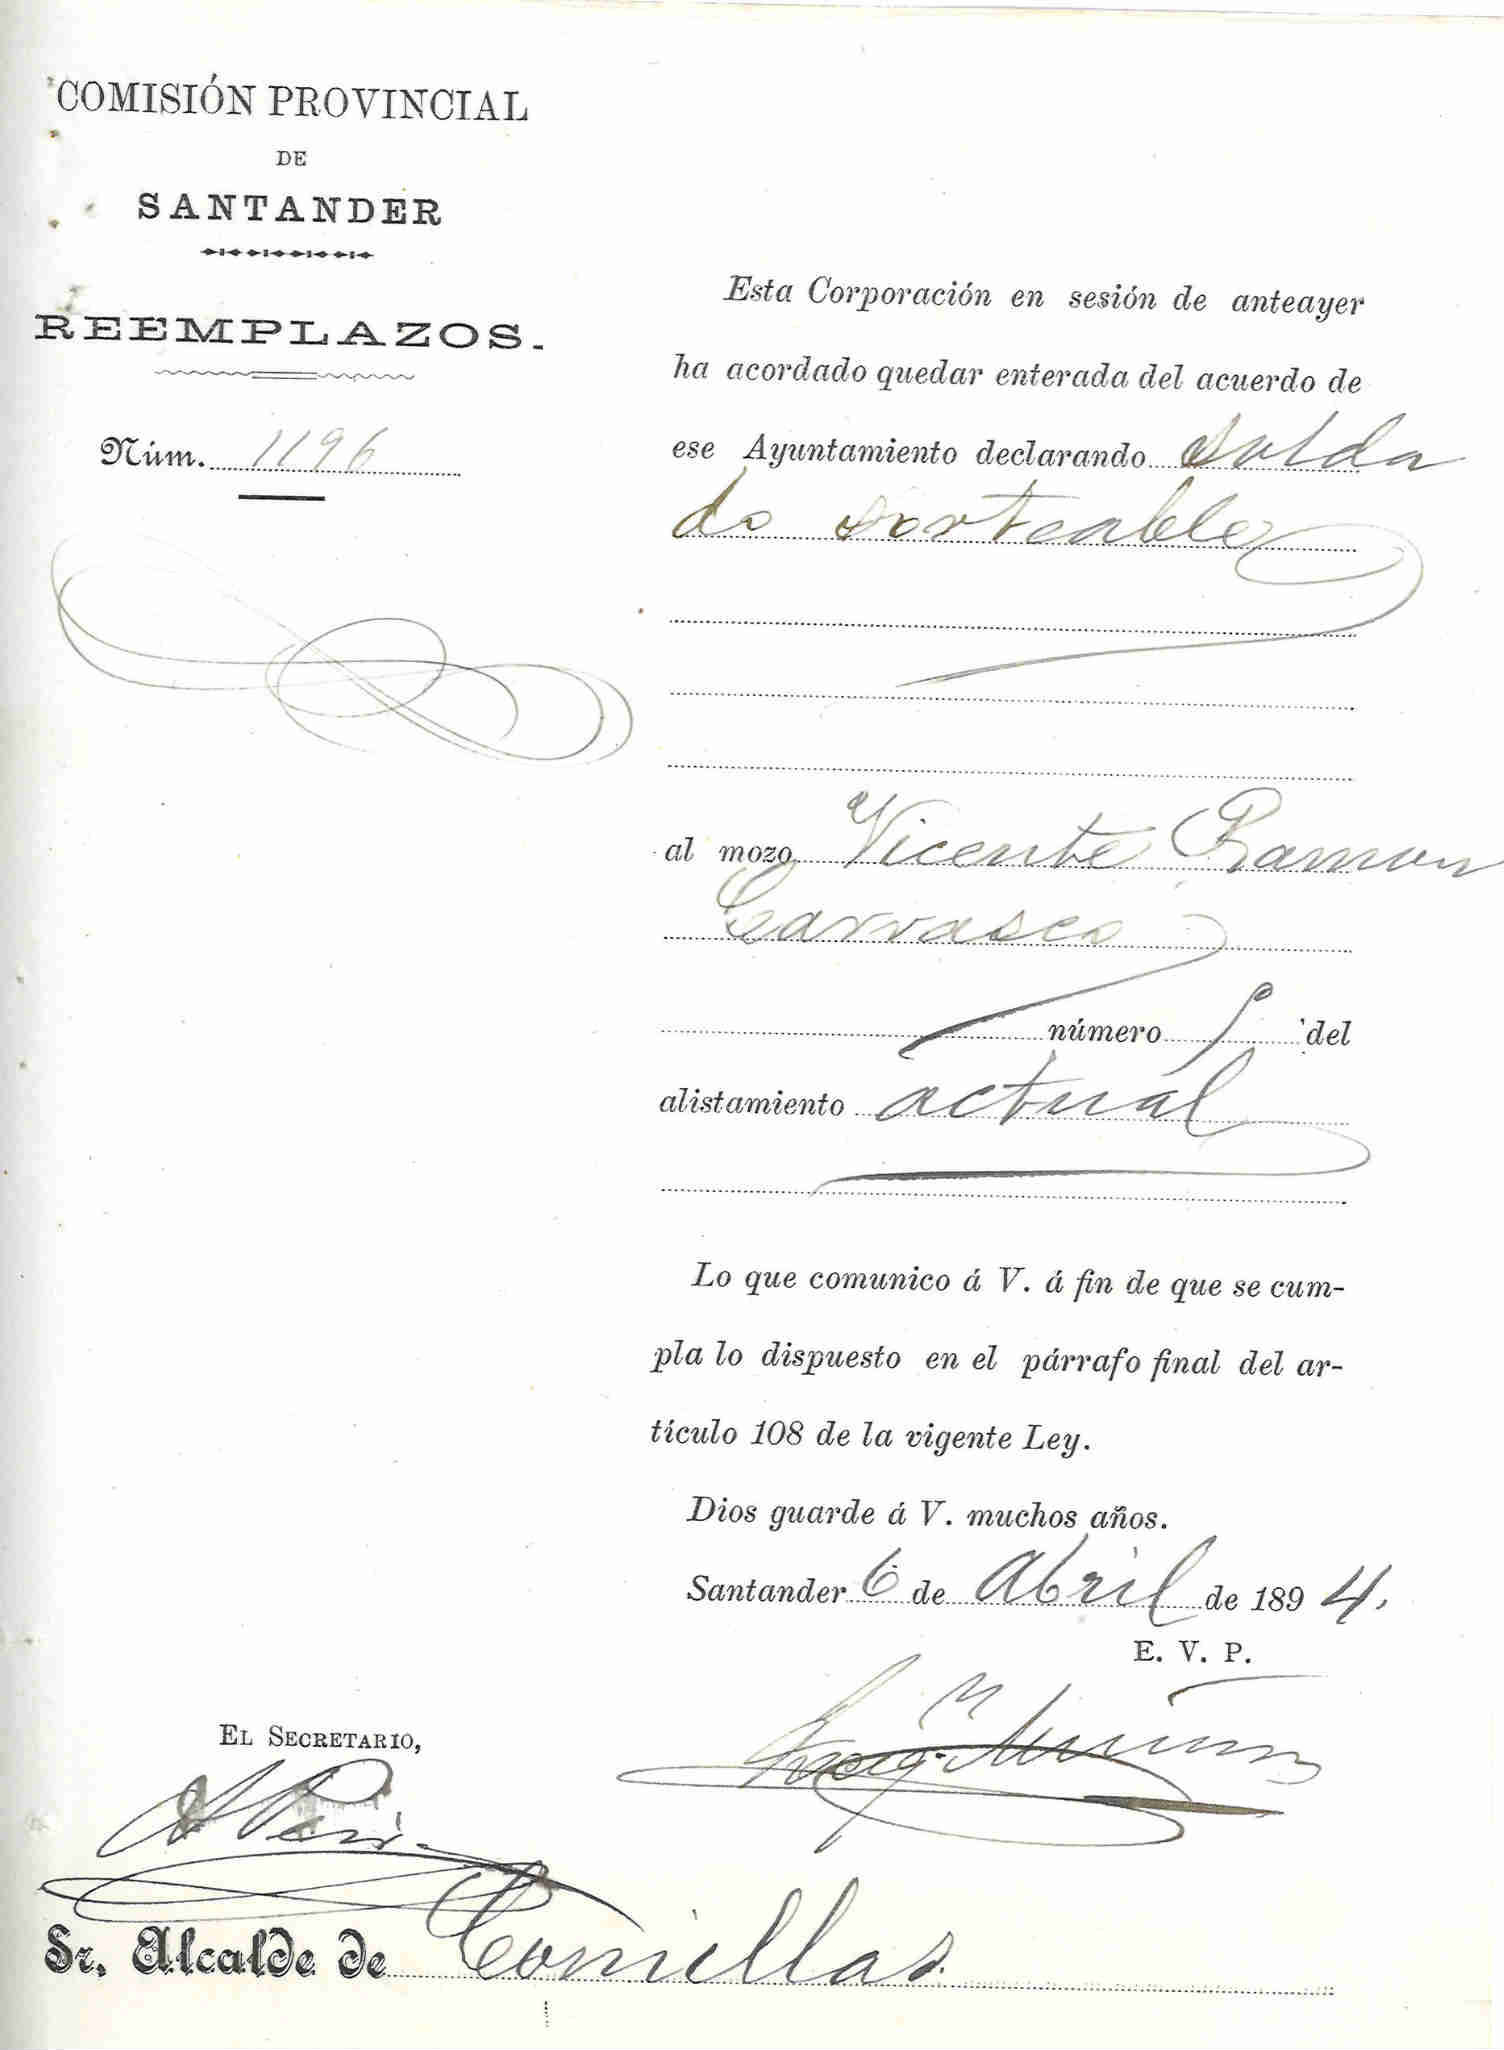 COMISIÓN PROVINCIAL
DE
SANTANDER
REEMPLAZOS.
Núm. 1196
Esta Corporación en sesión de anteayer
ha acordado quedar enterada del acuerdo de
ese Ayuntamiento declarando solda
do sorteable
al mozo Vicente Ramon
Carrasco
número 1 del
alistamiento actual
Lo que comunico á V. á fin de que se cum-
pla lo dispuesto en el párrafo final del ar-
tículo 108 de la vigente Ley.
Dios guarde á V. muchos años.
Santander 6 de Abril de 1894.
E. V. P.
EL SECRETARIO,
Sr. Alcalde de Comillas.